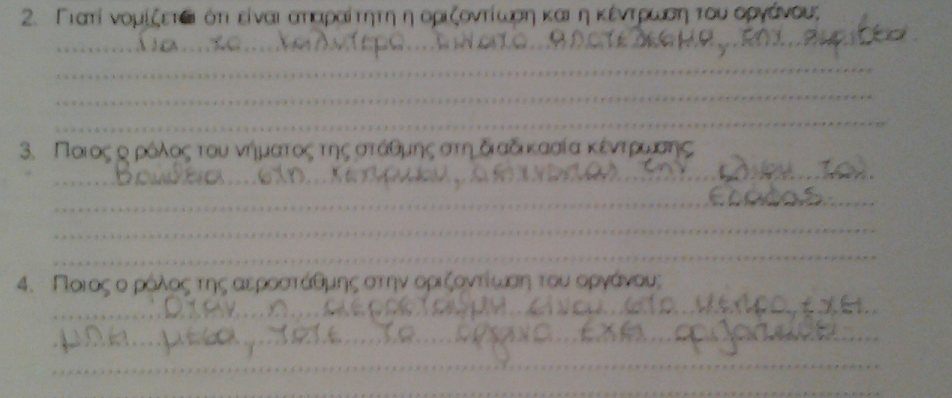 2. Γιατί νομίζετε ότι είναι απαραίτητη η οριζοντίωση και η κέντρωση του οργάνου;
Για το καλύτερο δυνατό αποτέλεσμα, την ακρίβεια.
3. Ποιος ο ρόλος του νήματος της στάθμης στη διαδικασία κέντρωσης;
Βοηθεια στη κεντρωση, δείχνοντας την κλιση του
εδαφος
4. Ποιος ο ρόλος της αεροστάθμης στην οριζοντίωση του οργάνου;
Όταν η αεροσταθμη είναι στο κέντρο, έχει
μπει μεσα, τοτε το οργανο εχει οριζοντιωθει